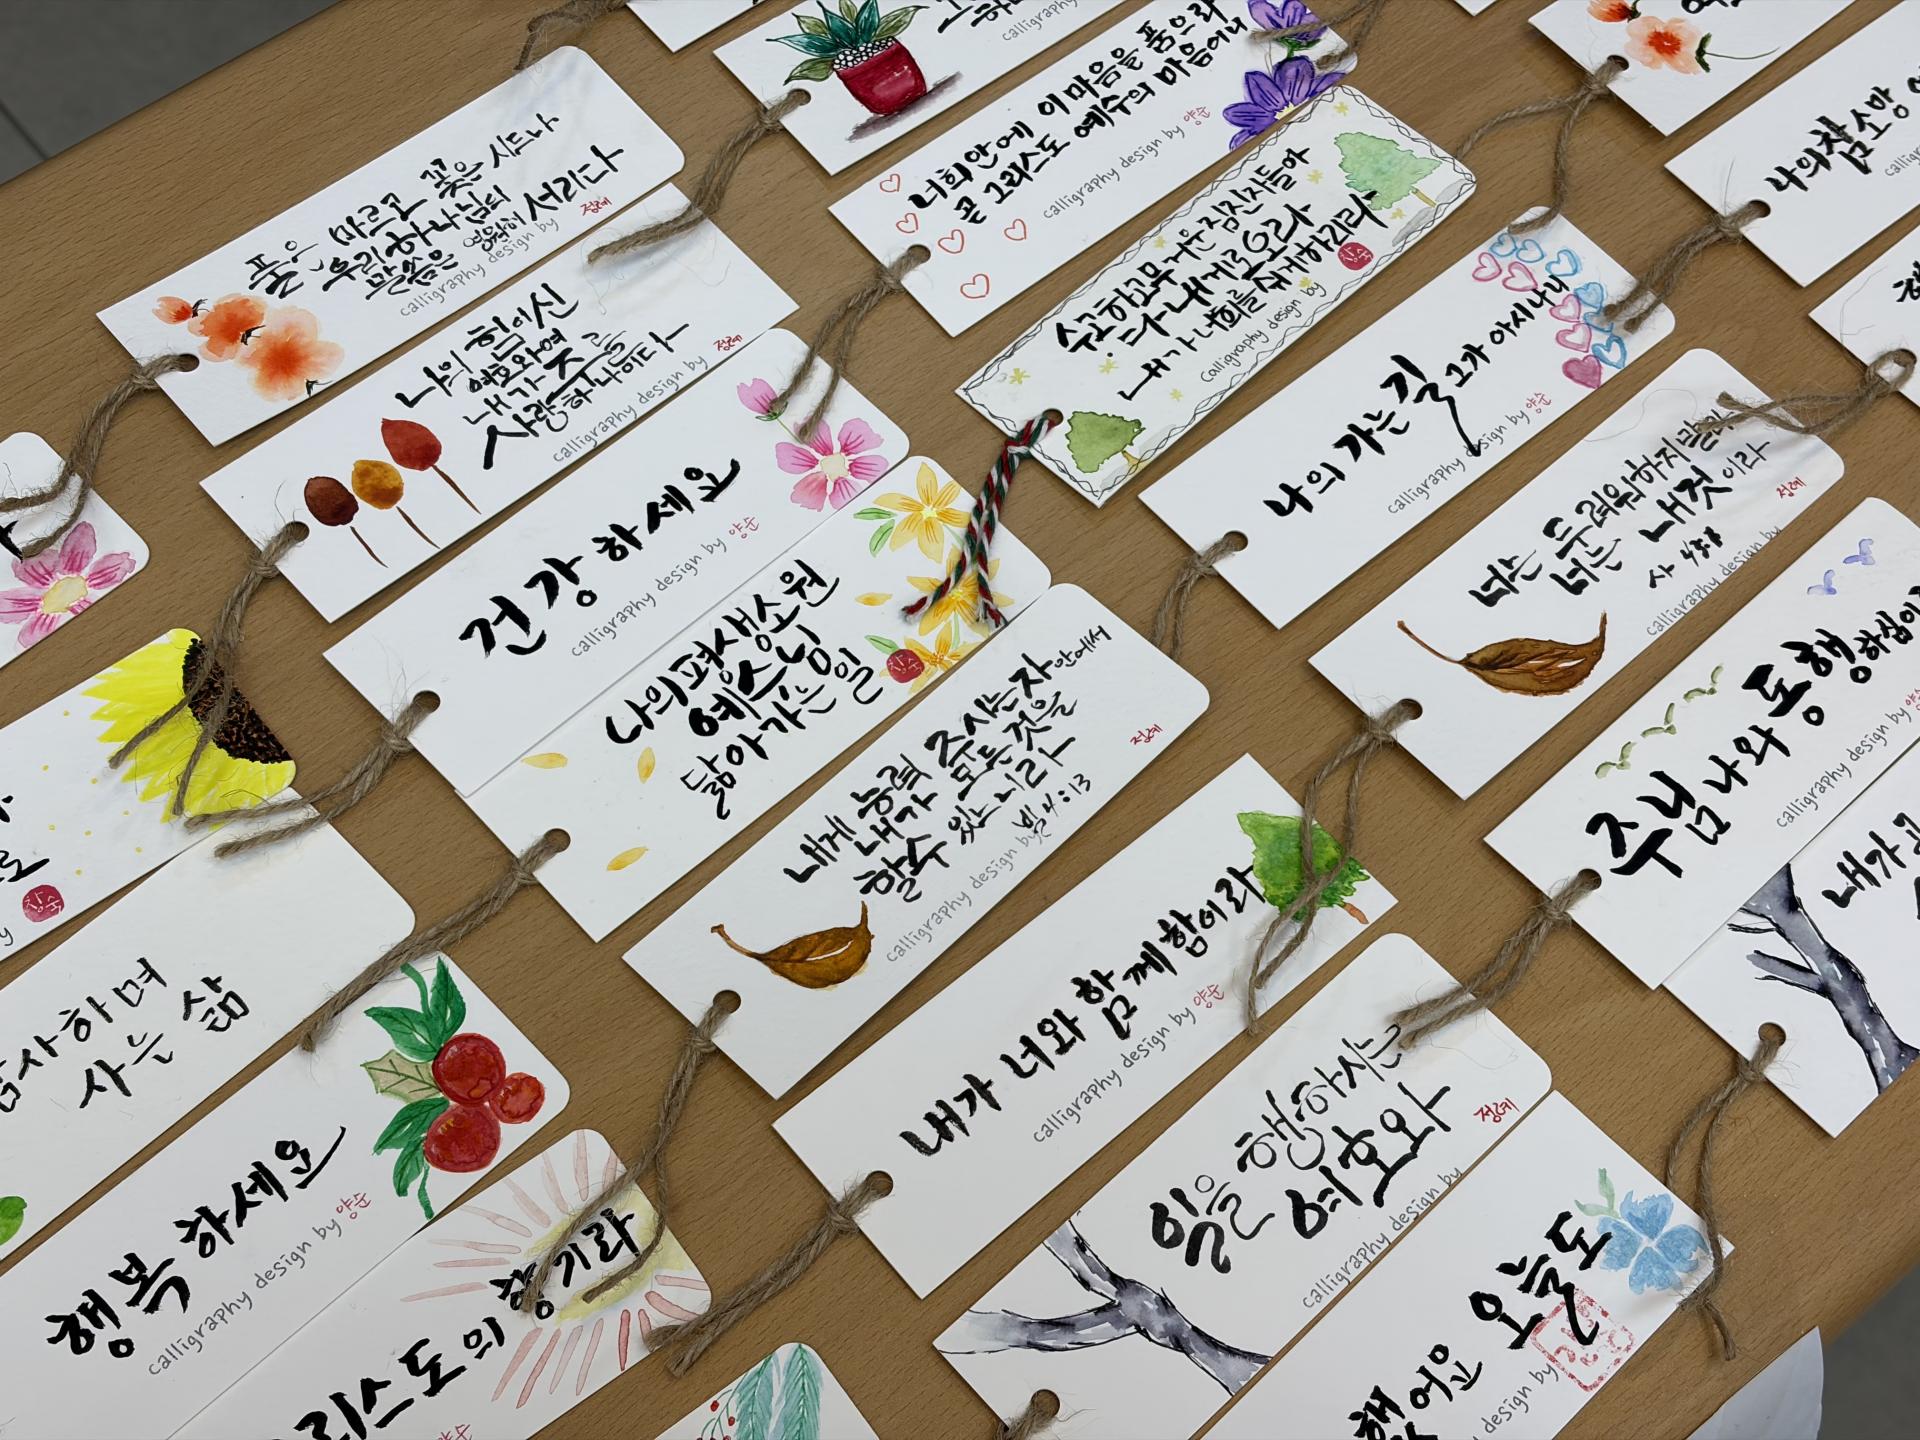 calligraphy design by
너희안에 이 마음을 품으라
곧 그리스도 예수의 마음이니
calligraphy design by 양순
풀은 마르고 꽃은 시드나
우리 하나님의
말씀은 영원히 서리다
calligraphy design by
정례
나의 힘이신
여호와여
내가 주를
사랑하나이다
calligraphy design by
정례
건강하세요
calligraphy design by 양순
나의 평생소원
예수님
닮아가는 일
창숙
수고하고 무거운 짐진자들아
다 내게로 오라
내가 너희를 쉬게하리라
calligraphy design by
창숙
나의 가는 길 그가 아시나니
calligraphy design by 양순
나의 참 소망
너는 두려워하지말라
너는 내것이라
사 43:1
calligraphy design by
정례
내게 능력 주시는 자 안에서
내가 모든 것을
할 수 있느니라
빌 4:13
calligraphy design by
정례
내가 너와 함께 함이라
calligraphy design by 양순
주님 나와 동행하심이
calligraphy design by 양순
내가
일을 행하시는
여호와
calligraphy design by
정례
했어요 오늘도
design by
창숙
사하며
사는 삶
행복하세요
calligraphy design by 양순
리스도의 향기라
양순